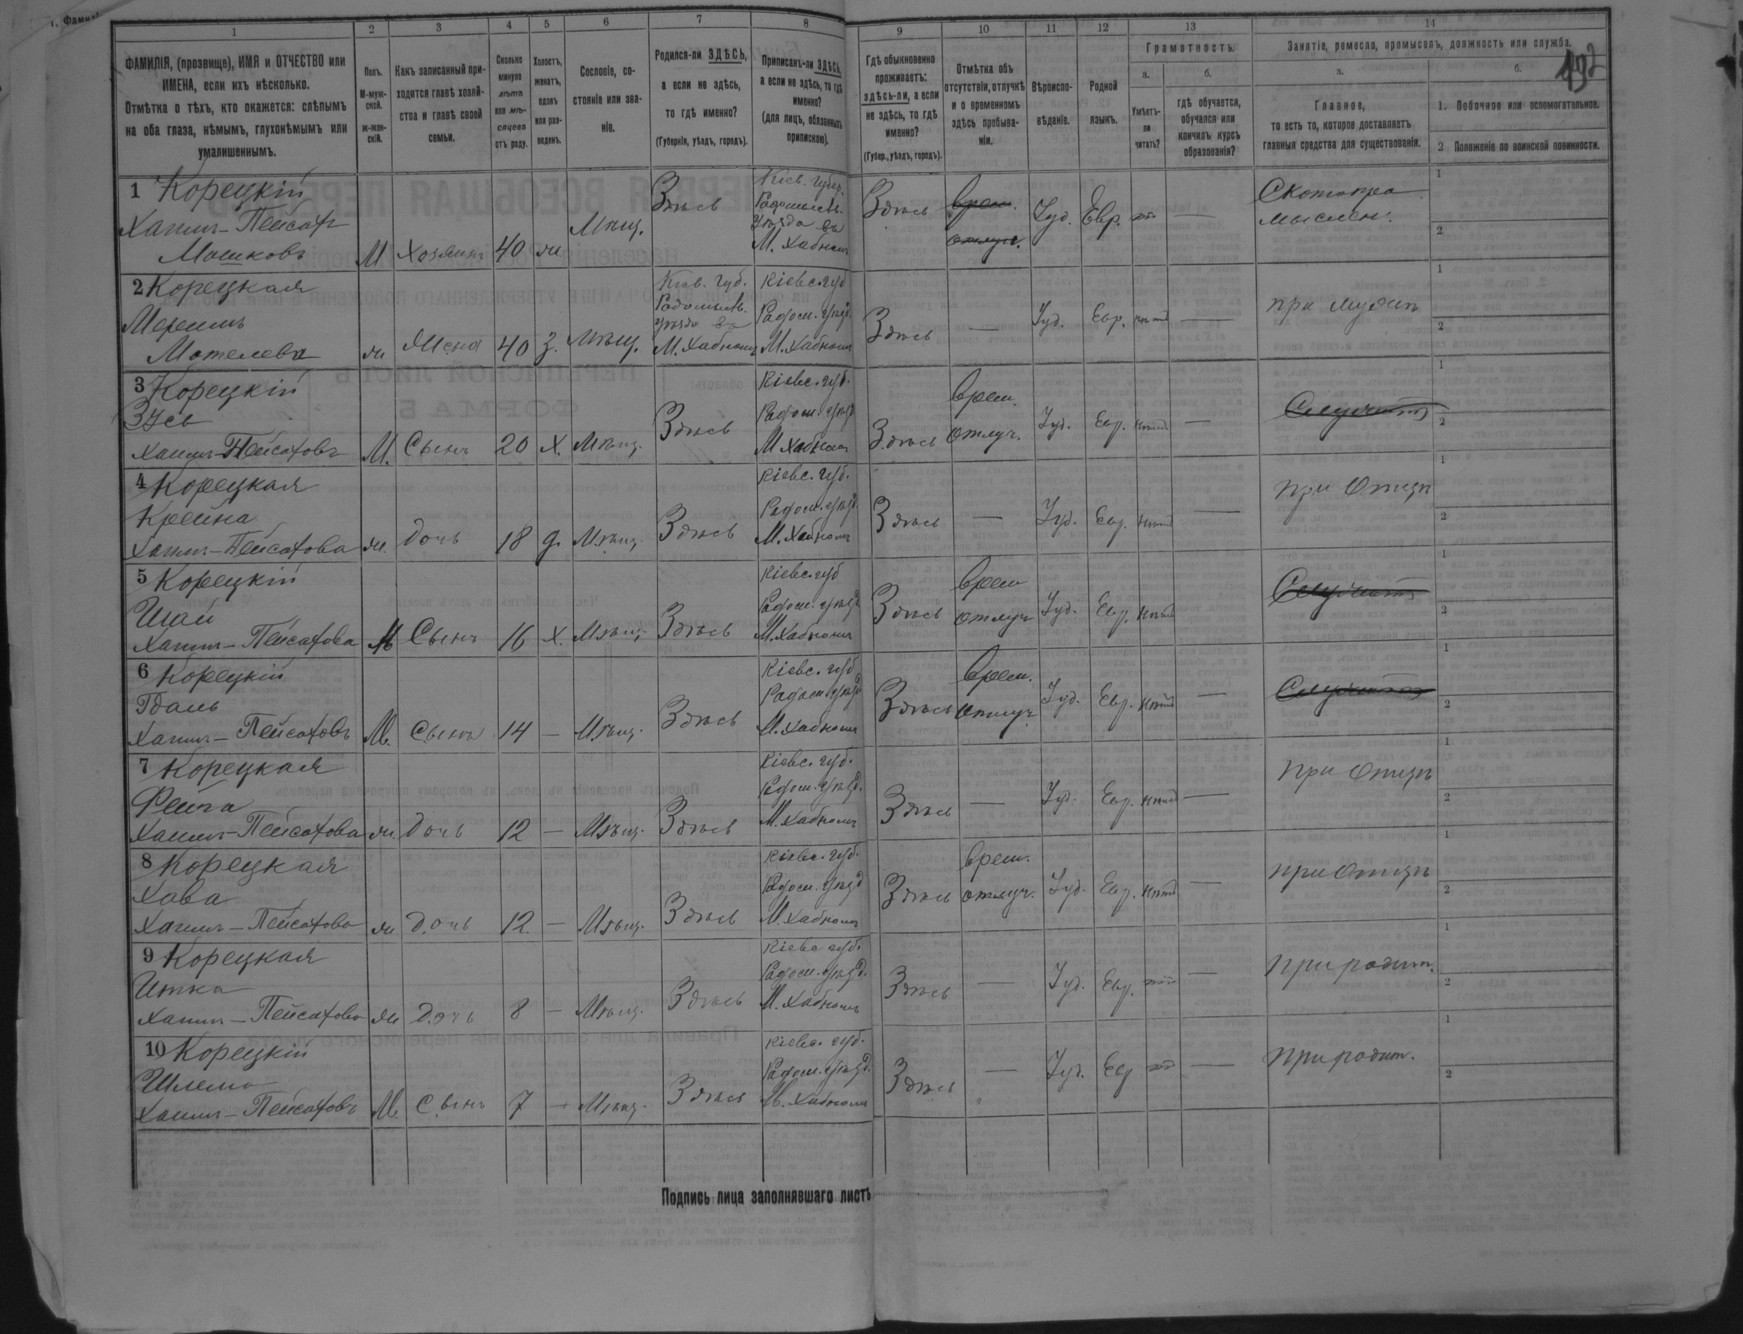 1 2 3 4 5 6 7 8 9 10 11 12 13 14
ФАМИЛІЯ, (прозвище), ИМЯ и ОТЧЕСТВО или
ИМЕНА, если ихъ нѣсколько.
Отмѣтка о тѣхъ, кто окажется: слѣпымъ
на оба глаза, нѣмымъ, глухонѣмымъ или
умалишеннымъ.
Полъ.
М-муж-
ской.
ж-жен-
скій.
Какъ записанный при-
ходится главѣ хозяй-
ства и главѣ своей
семьи.
Сколько
минуло
лѣтъ
или мѣ-
сяцевъ
отъ роду.
Холостъ,
женатъ,
вдовъ
или раз-
веденъ.
Сословіе, со-
стояніе или зва-
ніе.
Родился-ли ЗДѢСЬ,
а если не здѣсь,
то гдѣ именно?
(Губернія, уѣздъ, городъ).
Приписанъ-ли ЗДѢСЬ,
а если не здѣсь, то гдѣ
именно?
(для лицъ, обязанныхъ
припискою).
Гдѣ обыкновенно
проживаетъ:
здѣсь-ли, а если
не здѣсь, то гдѣ
именно?
(Губер., уѣздъ, городъ).
Отмѣтка объ
отсутствіи, отлучкѣ
и о временномъ
здѣсь пребыва-
ніи.
Вѣроиспо-
вѣданіе.
Родной
языкъ.
Грамотность.
а.
Умѣетъ-
ли
читать?
б.
гдѣ обучается,
обучался или
кончилъ курсъ
образованія?
Занятіе, ремесло, промыселъ, должность или служба.
а.
Главное,
то есть то, которое доставляетъ
главныя средства для существованія.
б.
1. Побочное или вспомогательное.
2 Положеніе по воинской повинности.
1 Корецкій
Хаимъ-Пейсахъ
Мошковъ М Хозяинъ 40 ж Мѣщ. Здѣсь
Кіев. губер.
Радомысль.
уѣзда въ
М. Хабном
Здѣсь Врем. отлуч. Іуд. Евр. —
Скотопро
мыслен.
2 Корецкая
Мотелева ж Жена 40 з. Мѣщ.
Кіев. губ.
Радомысль.
уѣзда въ
М. Хабном
Кіевс. губ
Радом. уѣзд.
М. Хабном
Здѣсь — Іуд. Евр. — при мужѣ
3 Корецкій
Зусь
Хаимъ-Пейсаховъ М. Сынъ 20 х. Мѣщ. Здѣсь
Кіевс. губ.
Радом. уѣзд
М. Хабном
Здѣсь Врем. отлуч. Іуд. Евр. —
4 Корецкая
Крейна
Хаимъ-Пейсахова ж. дочь 18 д. Мѣщ. Здѣсь
Кіевс. губ.
Радом. уѣзд.
М. Хабном
Здѣсь — Іуд. Евр. — при Отцѣ
5 Корецкій
Шай
Хаимъ-Пейсахова М Сынъ 16 х. Мѣщ. Здѣсь
Кіевс. губ
Радом. уѣзд
М. Хабном
Здѣсь Врем отлуч Іуд. Евр.
6 Корецкій
Гдаль
Хаимъ-Пейсаховъ М. Сынъ 14 — Мѣщ. Здѣсь
Кіевс. губ
Радом. уѣзд
М. Хабном
Здѣсь Врем. отлуч. Іуд. Евр. —
7 Корецкая
Фейга
Хаимъ-Пейсахова ж. дочь 12 — Мѣщ. Здѣсь
Кіевс. губ.
Радом. уѣзд.
М. Хабном
Здѣсь — Іуд. Евр. — при Отцѣ
8 Корецкая
Хава
Хаимъ-Пейсахова ж дочь 12. — Мѣщ. Здѣсь
Кіевс. губ.
Радом. уѣзд
М. Хабном
Здѣсь Врем. отлуч. Іуд. Евр. — при Отцѣ
9 Корецкая
Итка
Хаимъ-Пейсахова ж Дочь 8 — Мѣщ. Здѣсь
Кіевс. губ.
Радом. уѣзд.
М. Хабном
Здѣсь — Іуд. Евр. — при родит.
10 Корецкій
Шлема
Хаимъ-Пейсаховъ М. Сынъ 7 — Мѣщ. Здѣсь
Кіевс. губ.
Радом. уѣзд.
М. Хабном
Здѣсь — Іуд. Евр — при родит.
Подпись лица заполнявшаго листъ